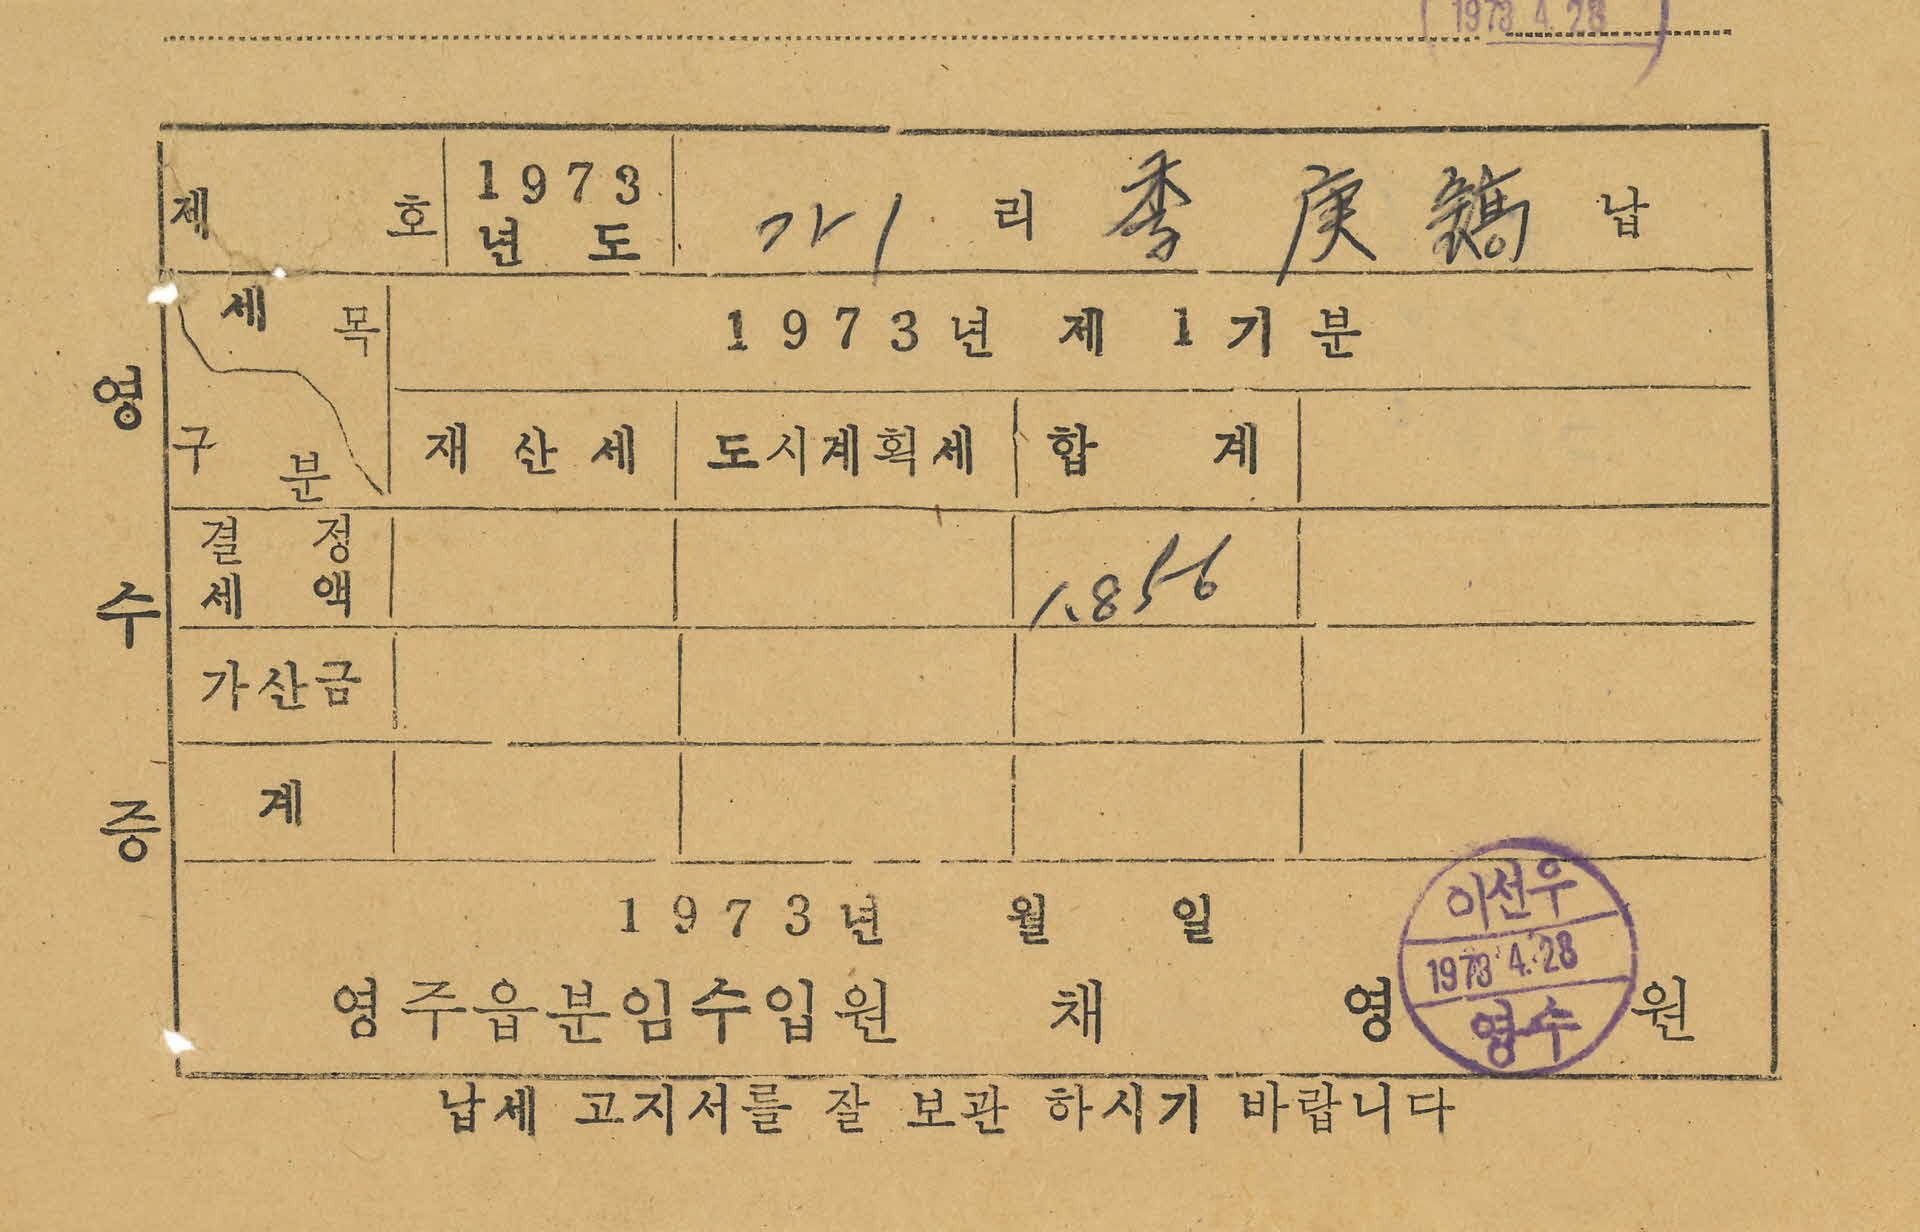 1973 4. 28
제 호 1973 년 도 가 1 리 李 庚 鎬 납
세 목 1973년 제 1 기 분
구 분 재 산 세 도시계획세 합 계
결 정 세 액 1.856
가산금
계
영 수 증
1973년 월 일
영주읍분임수입원 채 영 원
이선우
1973 4. 28
영수
납세 고지서를 잘 보관 하시기 바랍니다